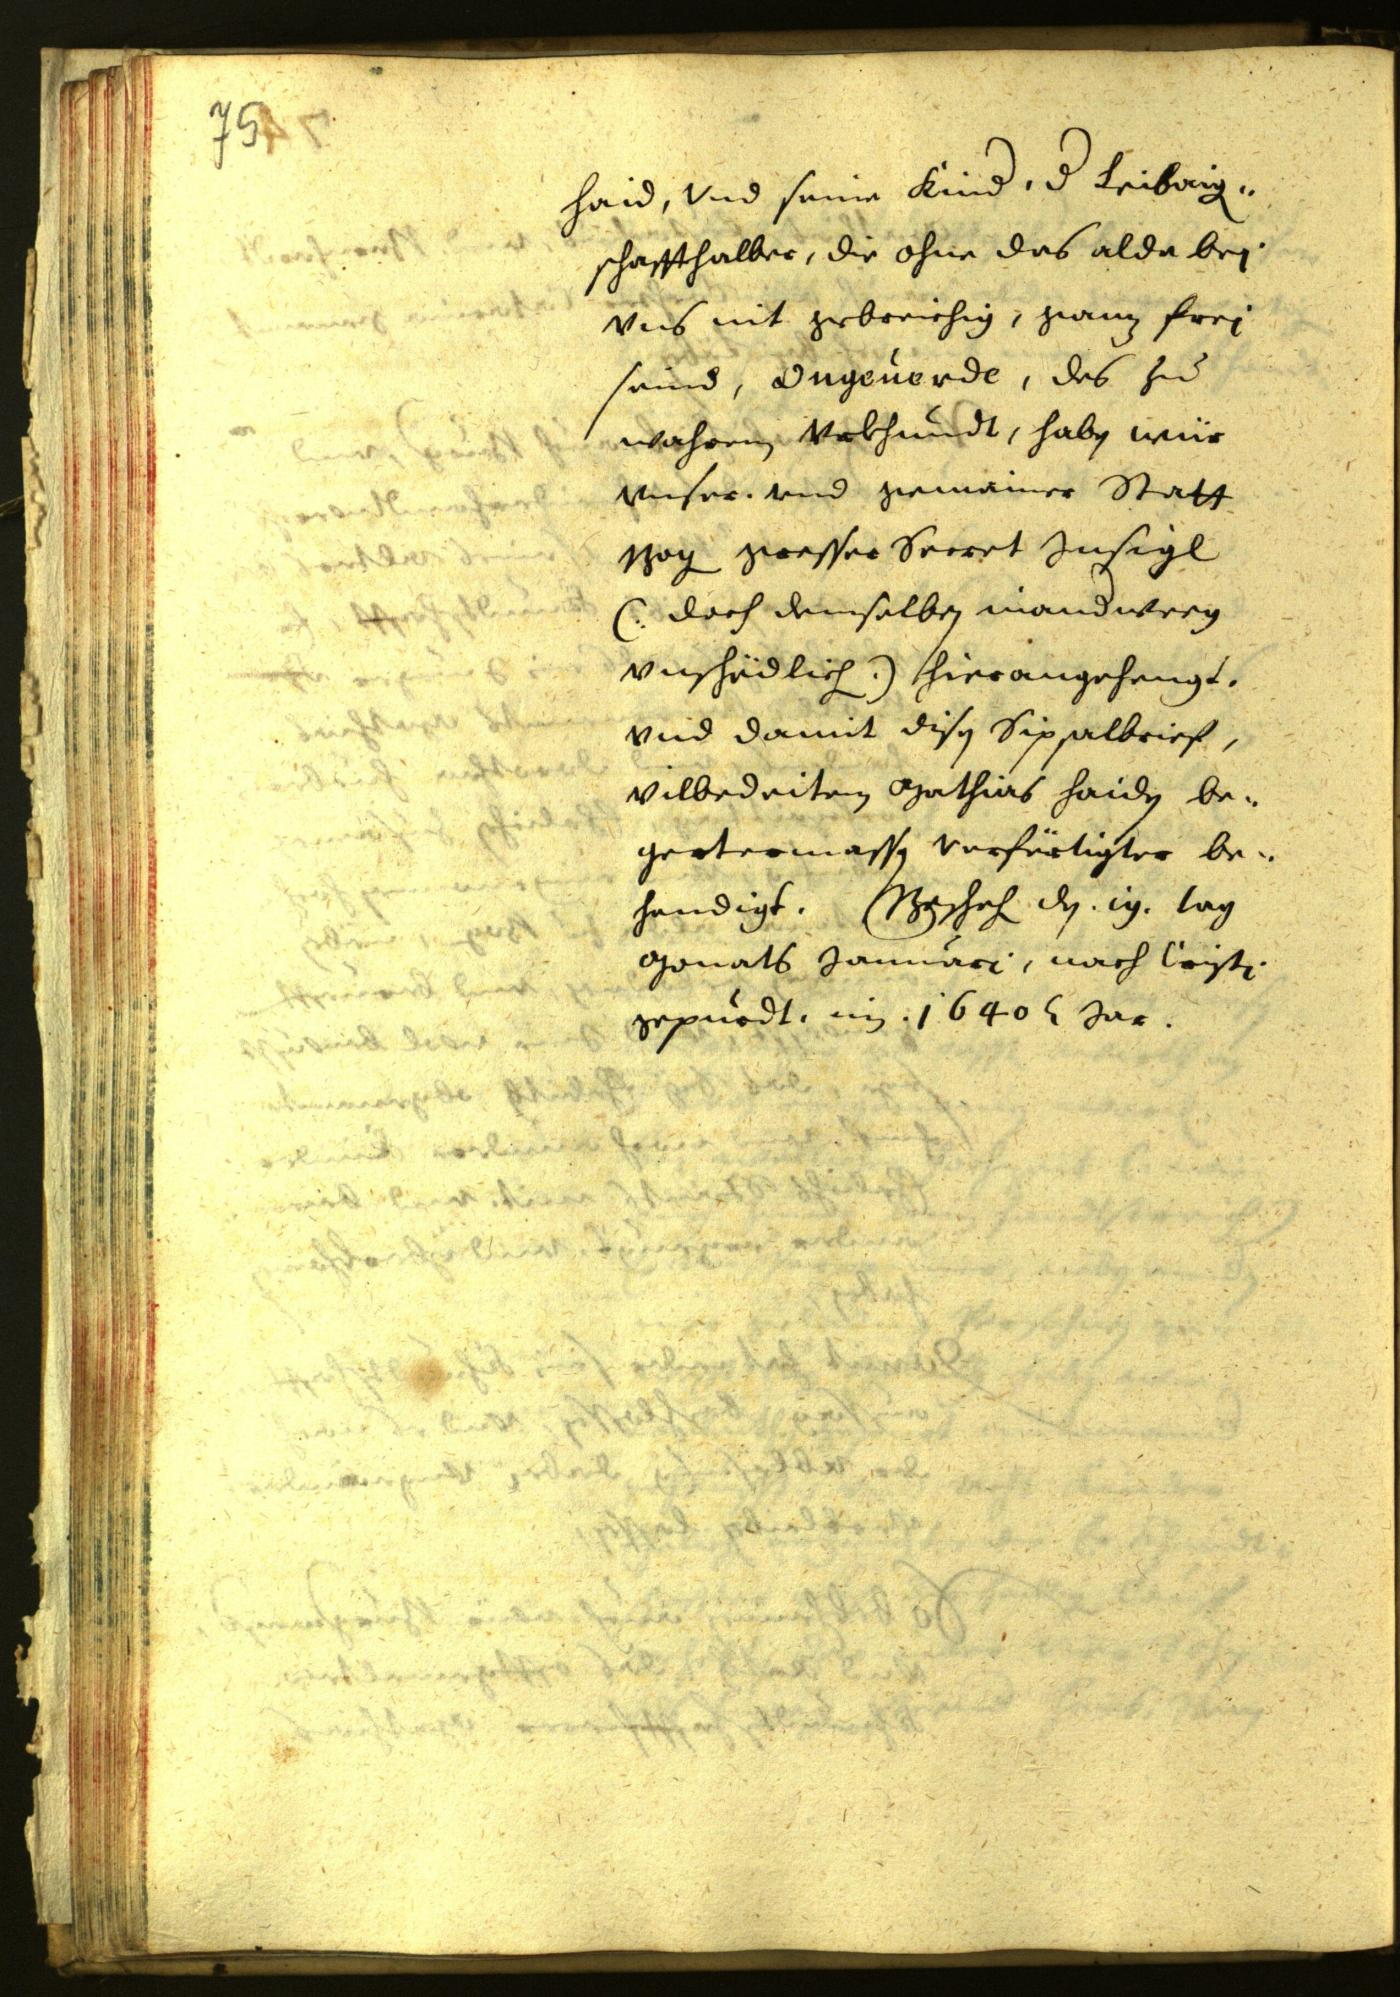 75
haid, Vnd seine Kinder, der Leibaig„
schaffthalber, die ohne das alda beÿ
vns nit gebreichig, ganz freÿ
seind, Ongeuerde, des zu
wahrem Vrkhundt, haben wür
vnser. vnd gemainer Statt
Bozen gresser Secret Insigl
(: doch demselben in anderweeg
vnschedlich :) hierangehengt.
vnd damit disen Sipsalbrief,
vilbedeiten Mathias haiden be„
gertermassen verfertigter be„
hendigt. Bescheh den . 19. tag
Monats Januarj, nach Cristj
gepurdt. im . 1640 t Jar .